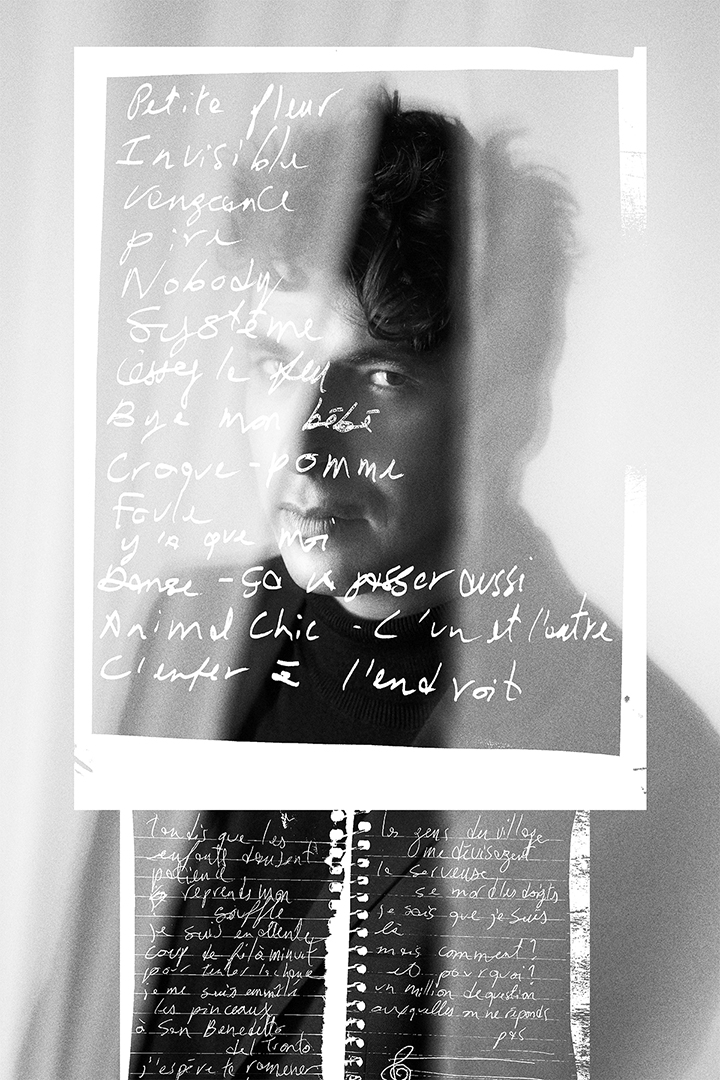 Petite fleur
Invisible
Vengeance
pire
Nobody
Système
Cessez le feu
Bye mon bébé
Croque-pomme
Foule
y'a que moi
Danse - ça va passer aussi
Animal Chic - C'un et l'autre
C'enfer à l'endroit
tandis que les
enfants dansent
patience
je reprends mon
souffle
je suis en attente
coup de fil à minuit
pour tenter la chance
je me suis emmêlé
les pinceaux
à San Benedetto
del Tronto
j'espère te ramener
les gens du village
me dévisagent
la serveuse
se mord les doigts
je sais que je suis
là
mais comment?
et pourquoi?
un million de question
auxquelles on ne réponds
pas